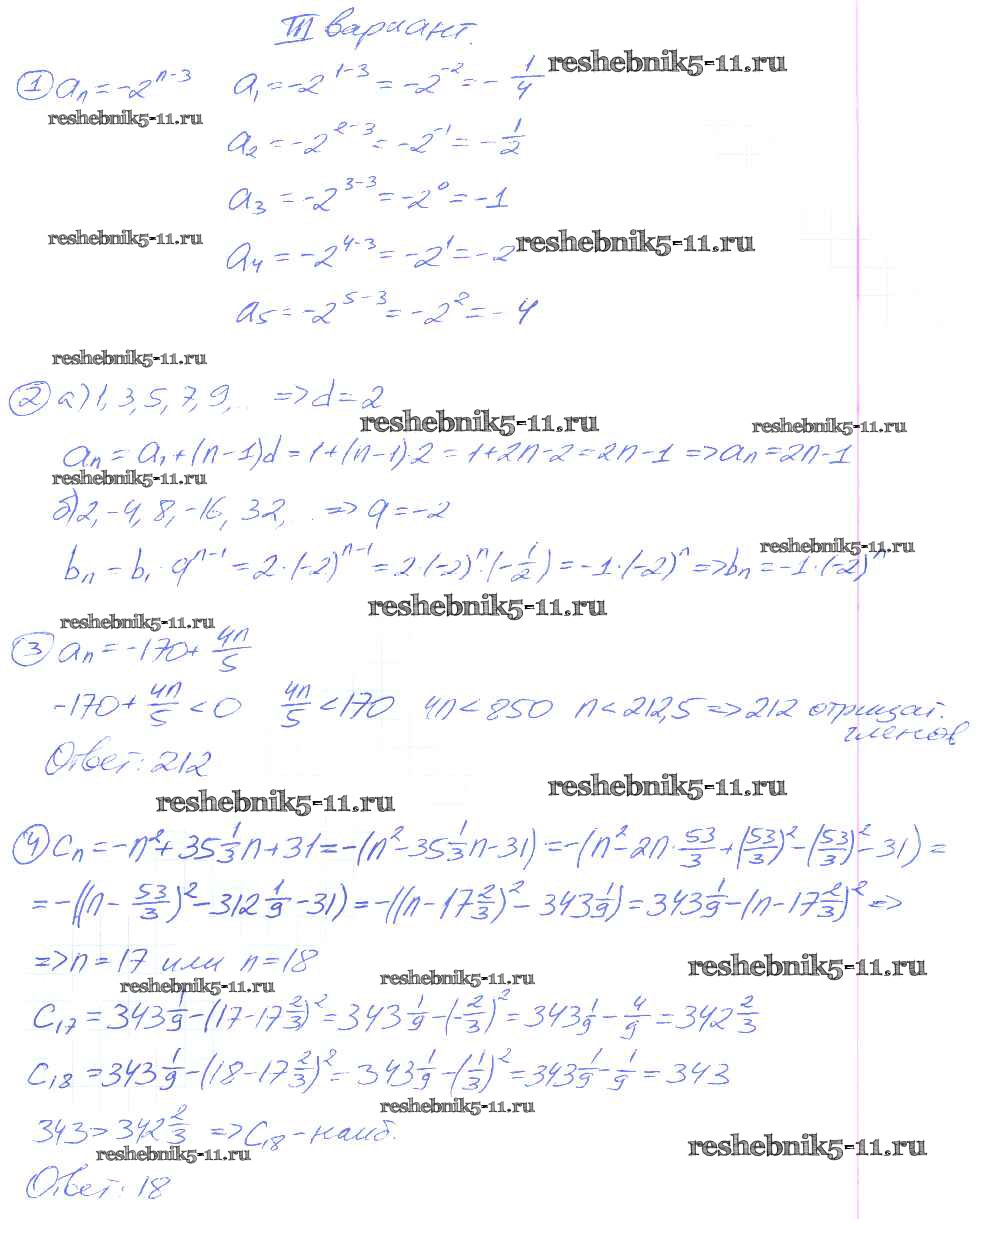 III вариант.
① aₙ = -2ⁿ⁻³ a₁ = -2¹⁻³ = -2⁻² = -1/4 reshebnik5-11.ru
reshebnik5-11.ru
a₂ = -2²⁻³ = -2⁻¹ = -1/2
a₃ = -2³⁻³ = -2⁰ = -1
reshebnik5-11.ru
a₄ = -2⁴⁻³ = -2¹ = -2 reshebnik5-11.ru
a₅ = -2⁵⁻³ = -2² = -4
reshebnik5-11.ru
② а) 1, 3, 5, 7, 9, .. => d = 2
reshebnik5-11.ru reshebnik5-11.ru
aₙ = a₁ + (n-1)d = 1 + (n-1)·2 = 1 + 2n - 2 = 2n - 1 => aₙ = 2n - 1
reshebnik5-11.ru
б) 2, -4, 8, -16, 32, .. => q = -2
reshebnik5-11.ru
bₙ = b₁ · qⁿ⁻¹ = 2·(-2)ⁿ⁻¹ = 2·(-2)ⁿ·(-1/2) = -1·(-2)ⁿ => bₙ = -1·(-2)ⁿ
reshebnik5-11.ru
reshebnik5-11.ru
③ aₙ = -170 + 4n/5
-170 + 4n/5 < 0 4n/5 < 170 4n < 850 n < 212,5 => 212 отрицат.
членов
Ответ: 212
reshebnik5-11.ru reshebnik5-11.ru
④ cₙ = -n² + 35 1/3 n + 31 = -(n² - 35 1/3 n - 31) = -(n² - 2n · 53/3 + (53/3)² - (53/3)² - 31) =
= -((n - 53/3)² - 312 1/9 - 31) = -((n - 17 2/3)² - 343 1/9) = 343 1/9 - (n - 17 2/3)² =>
=> n = 17 или n = 18
reshebnik5-11.ru reshebnik5-11.ru reshebnik5-11.ru
c₁₇ = 343 1/9 - (17 - 17 2/3)² = 343 1/9 - (-2/3)² = 343 1/9 - 4/9 = 342 2/3
c₁₈ = 343 1/9 - (18 - 17 2/3)² = 343 1/9 - (1/3)² = 343 1/9 - 1/9 = 343
reshebnik5-11.ru
343 > 342 2/3 => c₁₈ - наиб.
reshebnik5-11.ru reshebnik5-11.ru
Ответ: 18